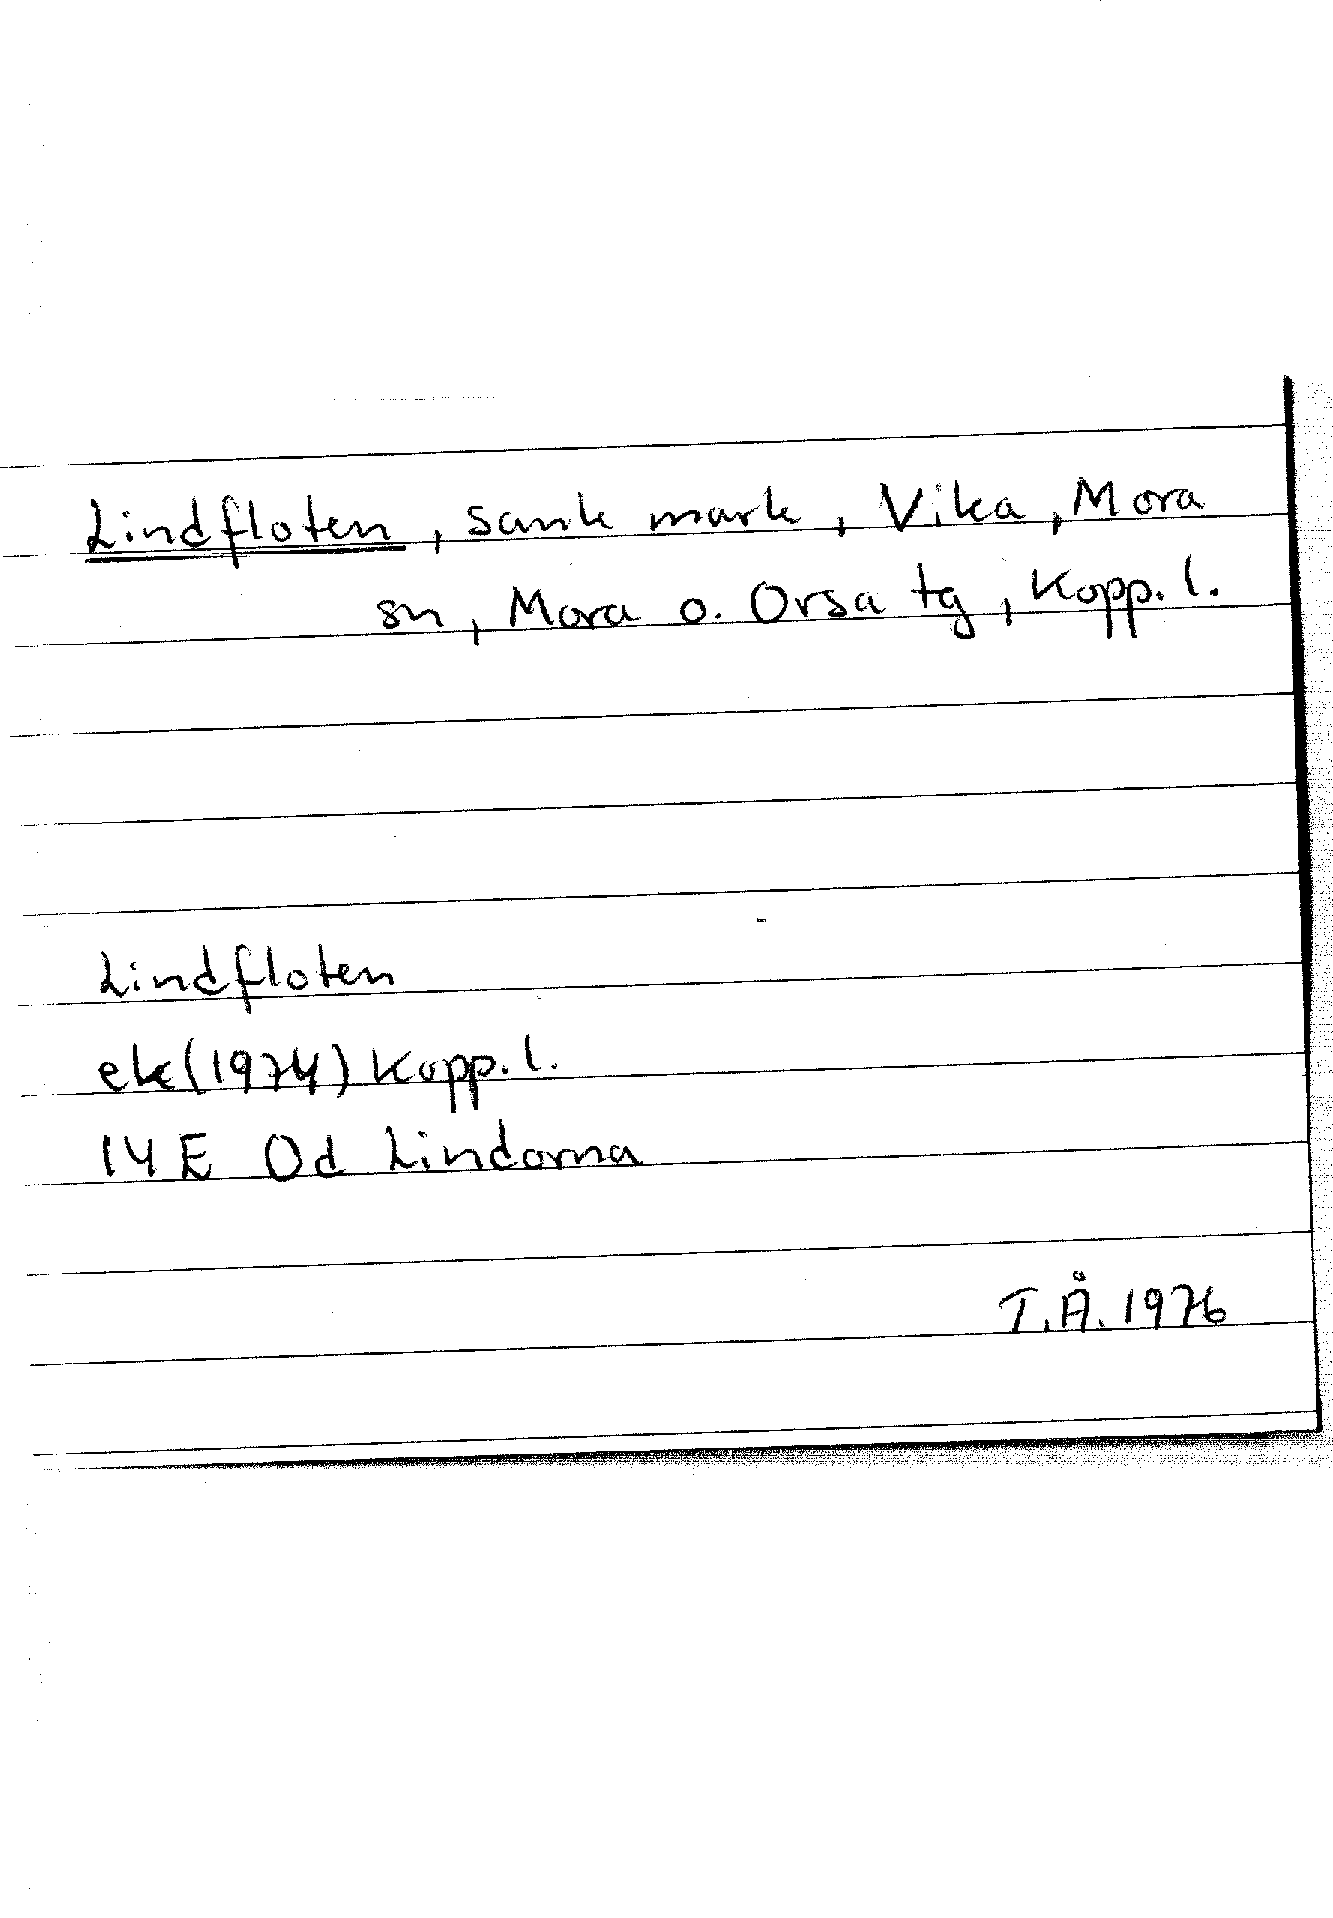 Lindfloten, sank mark, Vika, Mora
sn, Mora o. Orsa tg, Kopp. l.
Lindfloten
ek (1974) Kopp. l.
14 E Od Lindorna
T.Å. 1976